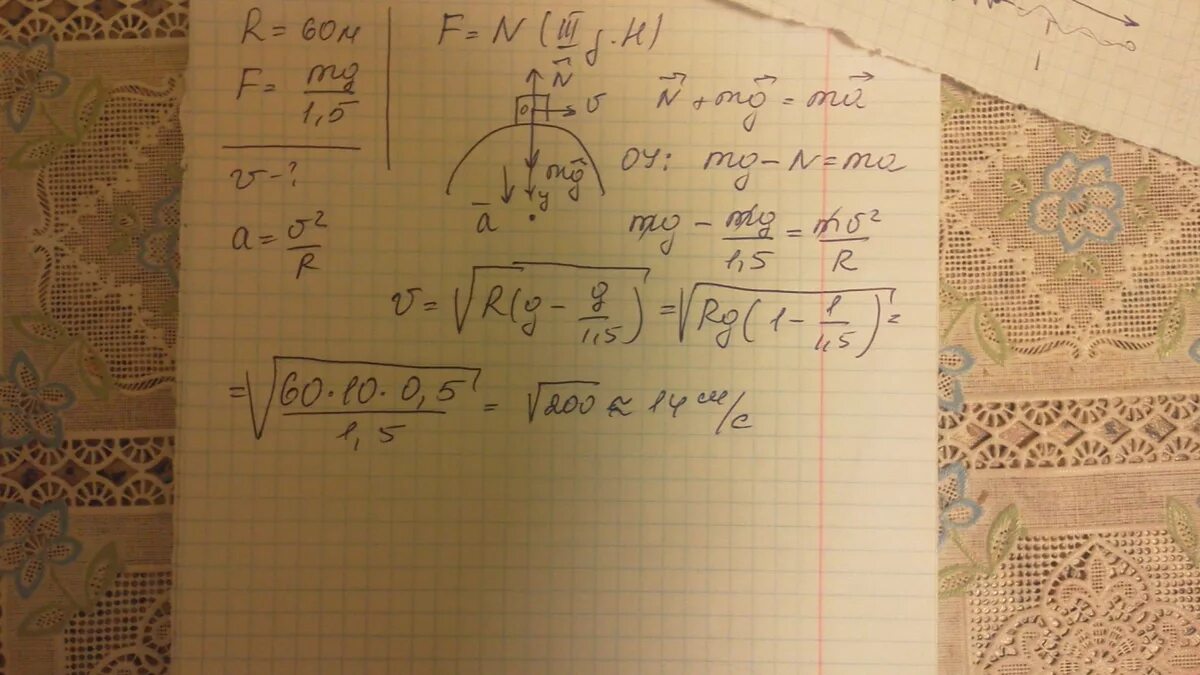 R = 60м
F = mg/1,5
v - ?
a = v²/R
F = N (III з. Н)
N⃗
v
mg⃗
y
a⃗
N⃗ + mg⃗ = ma⃗
OY: mg - N = ma
mg - mg/1,5 = mv²/R
v = √(R(g - g/1,5)) = √(Rg(1 - 1/1,5)) =
= √(60·10·0,5/1,5) = √200 ≈ 14 м/с